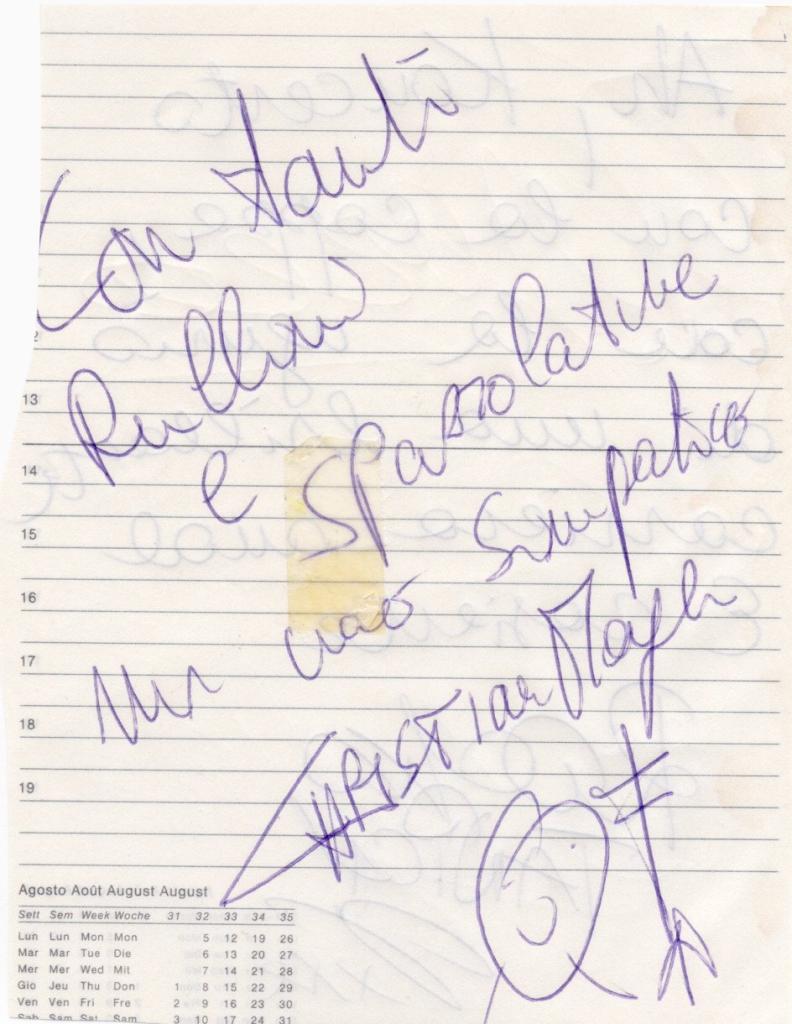 Con tanti
Rullini
e spazzolatine
Un ciao simpatico
CHRISTIAN Mayer
13
14
15
16
17
18
19
Agosto Août August August
Sett Sem Week Woche 31 32 33 34 35
Lun Lun Mon Mon 5 12 19 26
Mar Mar Tue Die 6 13 20 27
Mer Mer Wed Mit 7 14 21 28
Gio Jeu Thu Don 1 8 15 22 29
Ven Ven Fri Fre 2 9 16 23 30
Sab Sam Sat Sam 3 10 17 24 31